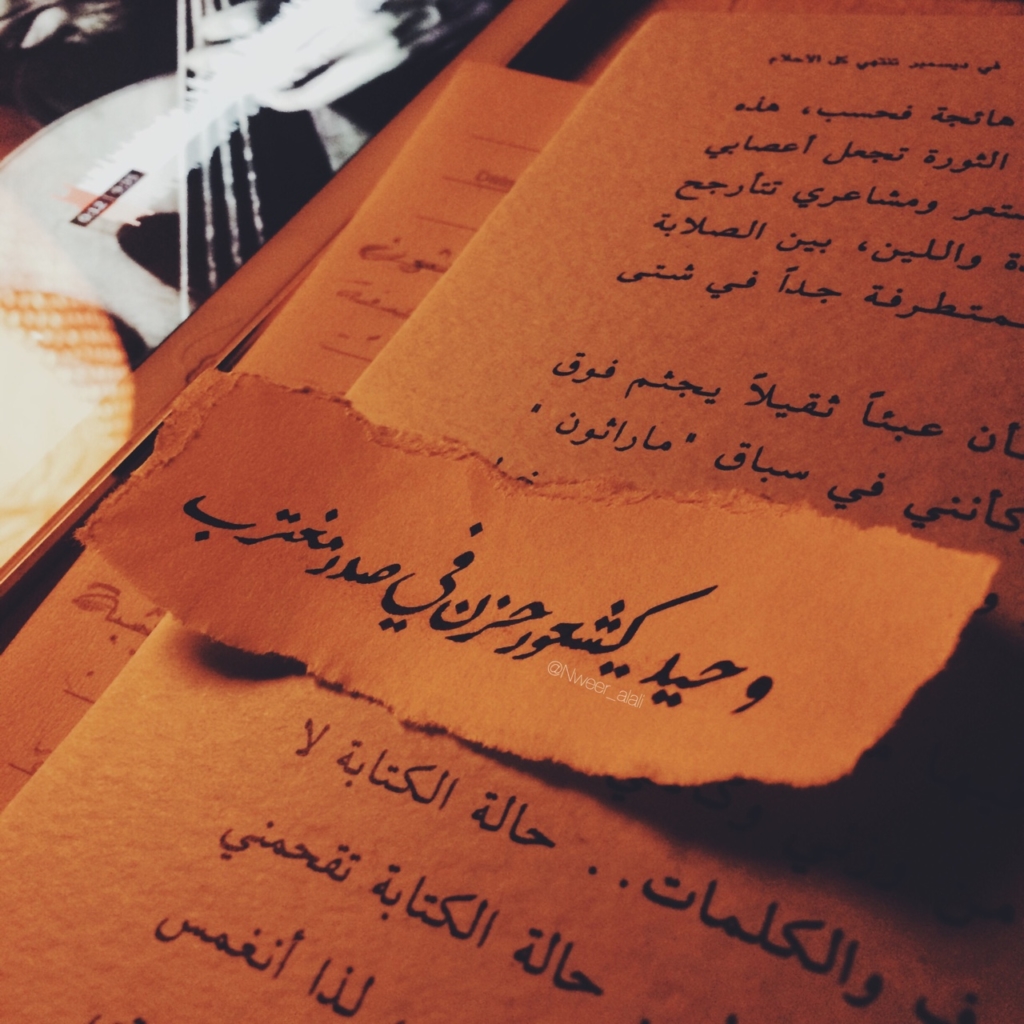 في ديسمبر تنتهي كل الأحلام
هائجة فحسب، هذه
الثورة تجعل أعصابي
ومشاعري تتأرجح
واللين، بين الصلابة
جداً في شتى
عبئاً ثقيلاً يجثم فوق
كأنني في سباق "ماراثون"
وحيد كشعور حزن في صدر مغترب
@Nweer_alali
حالة الكتابة لا
والكلمات..
حالة الكتابة تقحمني
لذا أنغمس